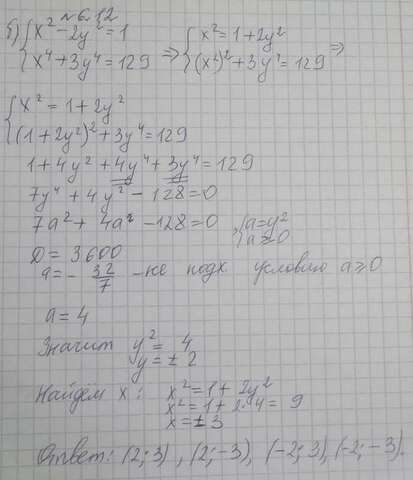 №6.12
б) {x² - 2y² = 1 {x² = 1 + 2y²
{x⁴ + 3y⁴ = 129 => {(x²)² + 3y⁴ = 129 =>
{x² = 1 + 2y²
{(1 + 2y²)² + 3y⁴ = 129
1 + 4y² + 4y⁴ + 3y⁴ = 129
7y⁴ + 4y² - 128 = 0
7a² + 4a² - 128 = 0, {a = y²
D = 3600 {a ≥ 0
a = - 32/7 - не подх. условию a ≥ 0
a = 4
Значит y² = 4
y = ± 2
Найдём x: x² = 1 + 2y²
x² = 1 + 2·4 = 9
x = ± 3
Ответ: (2; 3), (2; -3), (-2; 3), (-2; -3).